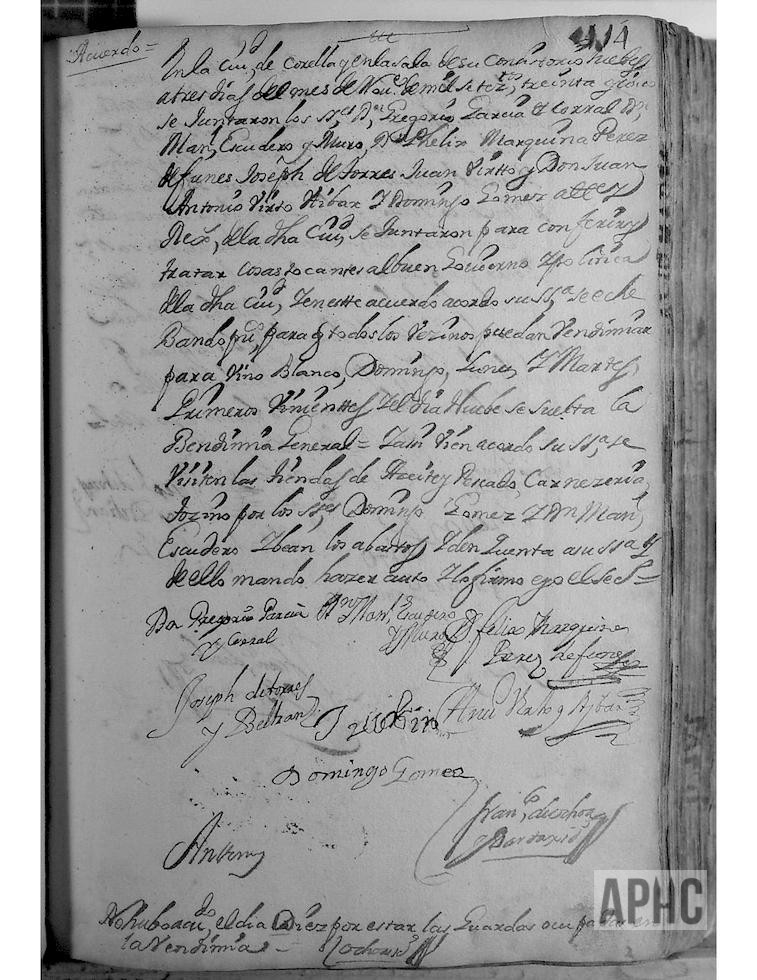 Acuerdo =
414
En la Ciud, de Corella y en la sala de su Consistorio
a tres dias del mes de Nove. de mil setetos, treinta y
se Juntaron los sres Dn, Gregorio Garcia y Corral Dn,
Manl, Escudero y Muro, Dn Phelix Marquina Perez
de funes Joseph de torres Juan Virtto y Don Juan
Antonio Virto Aibar Y Domingo Gomez
de la dha Ciud, se Juntaron para conferir y
tratar cosas tocantes al buen Govierno Y politica
de la dha Ciud, Y en este acuerdo acordo su ssa, se eche
Bando puco, para q todos los Vezinos puedan Vendimiar
para Vino Blanco, Domingo, Lunes, Y Martes,
Primeros Vinienttes Y el dia Nuebe se suelta la
Bendimia General = Tanvien acordo su ssa, se
Visiten las tiendas de Azeite y Pescado, Carnezeria,
Tozino por los sres Domingo Gomez Y Dn Manl,
Escudero Y bean los abastos Y den Quenta a su ssa y
de ello mando hazer auto Y lo firmo e yo el Secro =
Dn Gregorio Garcia Dn Manl Escudero Dn felix Marquina
y Corral y Muro Perez de funes
Joseph de torres Juan Virto y Aybar
y Beltran
Domingo Gomez
Ante my
No hubo acudo, el dia Diez por estar las Guardas ocupadas en
la Vendimia =